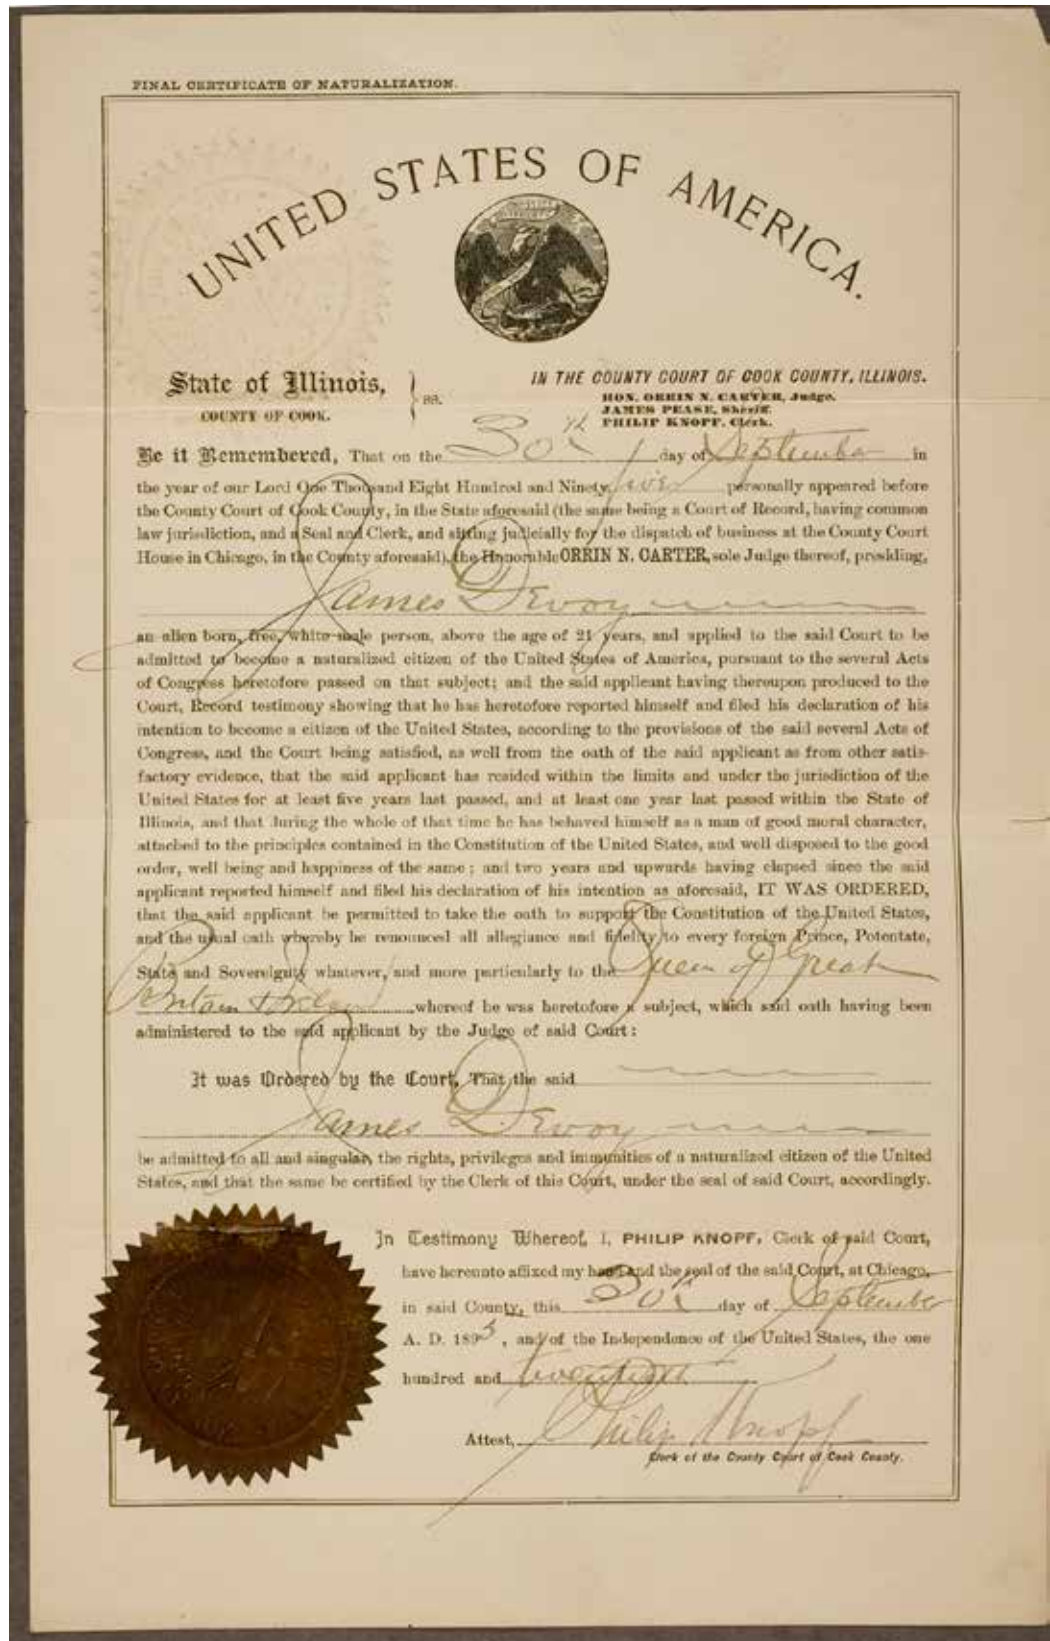 FINAL CERTIFICATE OF NATURALIZATION.
UNITED STATES OF AMERICA.
State of Illinois,
COUNTY OF COOK.
ss.
IN THE COUNTY COURT OF COOK COUNTY, ILLINOIS.
HON. ORRIN N. CARTER, Judge.
JAMES PEASE, Sheriff.
PHILIP KNOPF, Clerk.
Be it Remembered, That on the 30th day of September in
the year of our Lord One Thousand Eight Hundred and Ninety five personally appeared before
the County Court of Cook County, in the State aforesaid (the same being a Court of Record, having common
law jurisdiction, and a Seal and Clerk, and sitting judicially for the dispatch of business at the County Court
House in Chicago, in the County aforesaid), the Honorable ORRIN N. CARTER, sole Judge thereof, presiding,
James Devoy
an alien born, free, white male person, above the age of 21 years, and applied to the said Court to be
admitted to become a naturalized citizen of the United States of America, pursuant to the several Acts
of Congress heretofore passed on that subject; and the said applicant having thereupon produced to the
Court, Record testimony showing that he has heretofore reported himself and filed his declaration of his
intention to become a citizen of the United States, according to the provisions of the said several Acts of
Congress, and the Court being satisfied, as well from the oath of the said applicant as from other satis-
factory evidence, that the said applicant has resided within the limits and under the jurisdiction of the
United States for at least five years last passed, and at least one year last passed within the State of
Illinois, and that during the whole of that time he has behaved himself as a man of good moral character,
attached to the principles contained in the Constitution of the United States, and well disposed to the good
order, well being and happiness of the same; and two years and upwards having elapsed since the said
applicant reported himself and filed his declaration of his intention as aforesaid, IT WAS ORDERED,
that the said applicant be permitted to take the oath to support the Constitution of the United States,
and the usual oath whereby he renounced all allegiance and fidelity to every foreign Prince, Potentate,
State and Sovereignty whatever, and more particularly to the Queen of Great
Britain & Ireland whereof he was heretofore a subject, which said oath having been
administered to the said applicant by the Judge of said Court:
It was Ordered by the Court, That the said
James Devoy
be admitted to all and singular, the rights, privileges and immunities of a naturalized citizen of the United
States, and that the same be certified by the Clerk of this Court, under the seal of said Court, accordingly.
In Testimony Whereof, I, PHILIP KNOPF, Clerk of said Court,
have hereunto affixed my hand and the seal of the said Court, at Chicago,
in said County, this 30th day of September
A. D. 1895, and of the Independence of the United States, the one
hundred and twentieth
Attest, Philip Knopf
Clerk of the County Court of Cook County.